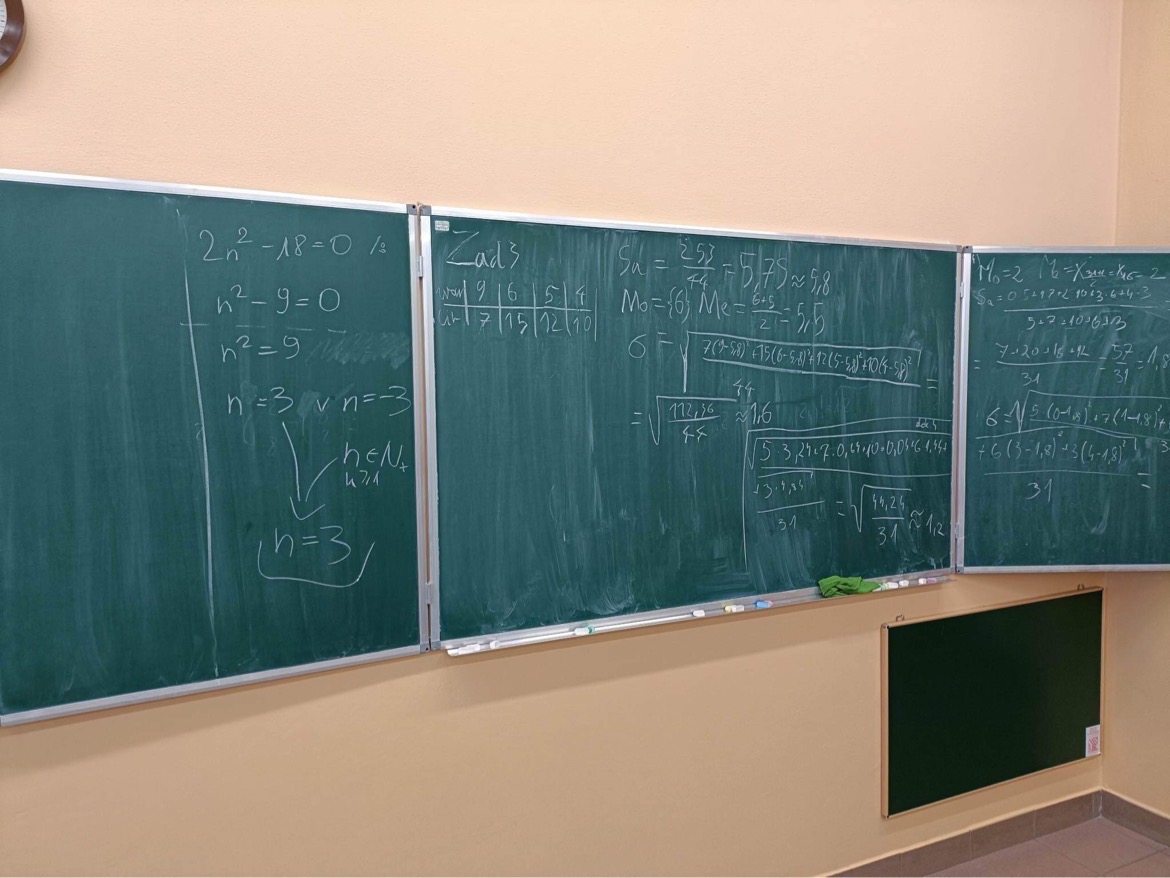 2n² - 18 = 0 /:2
n² - 9 = 0
n² = 9
n = 3 v n = -3
n ∈ N₊
n ≥ 1
n = 3
Zad 3
9 | 6 | 5 | 4
7 | 15 | 12 | 10
Sa = 253/44 = 5,75 ≈ 5,8
Mo = {6}, Me = (6+5)/2 = 5,5
6 = √(7(9-5,8)² + 15(6-5,8)² + 12(5-5,8)² + 10(4-5,8)²) / 44 =
= √(112,36/44) ≈ 1,6
√(5·3,24+7·0,64+10·0,04+6·1,44+
+3·4,84) / 31 = √(44,24/31) ≈ 1,2
M₀ = 2
Sa = 0·5+1·7+2·10+3·6+4·3
5+7+10+6+3
= (7+20+18+12)/31 = 57/31 = 1,8
6 = √(5(0-1,8)² + 7(1-1,8)² +
+6(3-1,8)² + 3(4-1,8)²
31 =